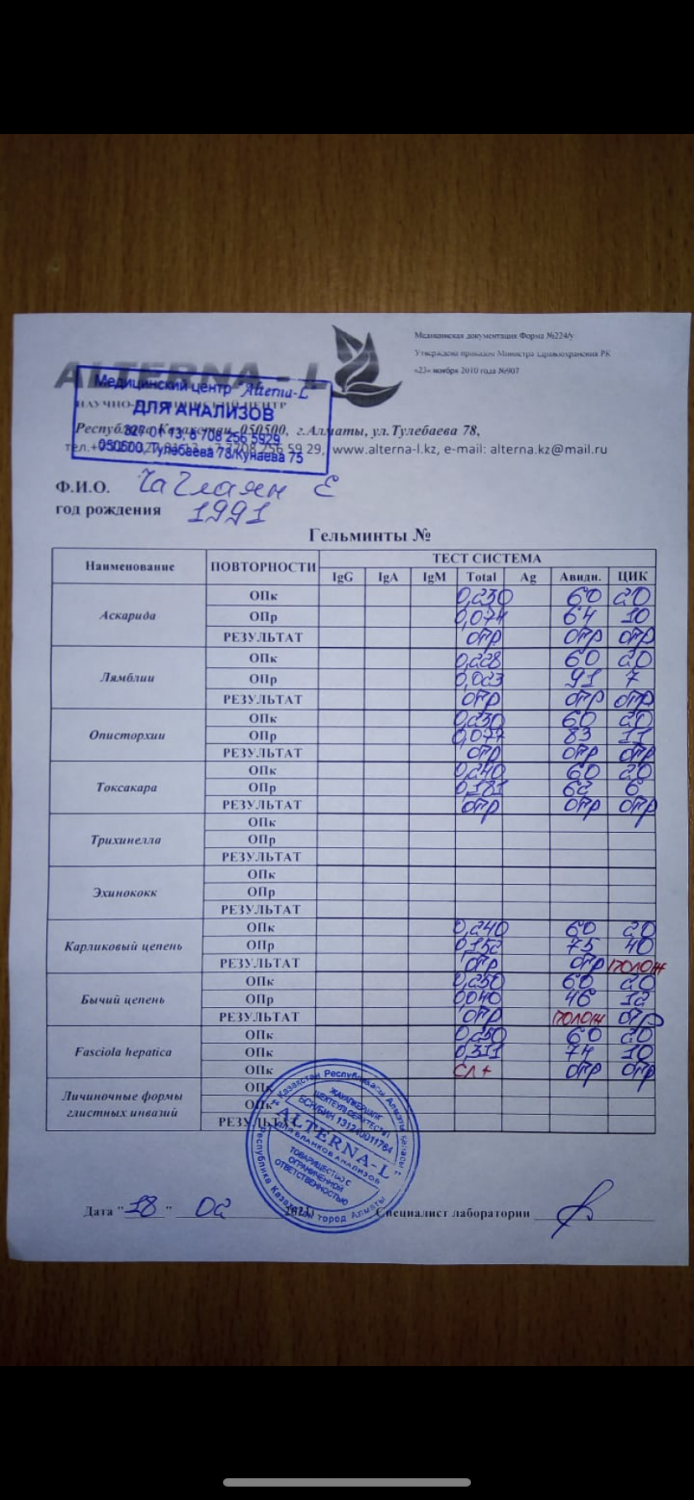 Медицинская документация Форма №224/у
Утверждена приказом Министра здравоохранения РК
«23» ноября 2010 года №907
ALTERNA - L
Медицинский центр "Alterna-L"
ДЛЯ АНАЛИЗОВ
327 01 13, 8 708 256 5929
050500, Тулебаева 78/Кунаева 75
Республика Казахстан, 050500, г.Алматы, ул.Тулебаева 78,
www.alterna-l.kz, e-mail: alterna.kz@mail.ru
Ф.И.О. Чаглаян Е
год рождения 1991
Гельминты №
Наименование ПОВТОРНОСТИ ТЕСТ СИСТЕМА
IgG IgA IgM Total Ag Авидн. ЦИК
Аскарида
ОПк 0,230 60 20
ОПр 0,074 64 10
РЕЗУЛЬТАТ отр отр отр
Лямблии
ОПк 0,228 60 20
ОПр 0,023 91 7
РЕЗУЛЬТАТ отр отр отр
Описторхии
ОПк 0,230 60 20
ОПр 0,077 83 11
РЕЗУЛЬТАТ отр отр отр
Токсакара
ОПк 0,240 60 20
ОПр 0,181 62 6
РЕЗУЛЬТАТ отр отр отр
Трихинелла
ОПк
ОПр
РЕЗУЛЬТАТ
Эхинококк
ОПк
ОПр
РЕЗУЛЬТАТ
Карликовый цепень
ОПк 0,240 60 20
ОПр 0,152 75 40
РЕЗУЛЬТАТ отр отр полож
Бычий цепень
ОПк 0,250 60 20
ОПр 0040 46 12
РЕЗУЛЬТАТ отр полож отр
Fasciola hepatica
ОПк 0,250 60 20
ОПк 0,311 74 10
ОПк сл + отр отр
Личиночные формы
глистных инвазий
ОПк
ОПк
РЕЗУЛЬТАТ
Қазақстан Республикасы Алматы қаласы
ЖАУАПКЕРШІЛІГІ
ШЕКТЕУЛІ СЕРІКТЕСТІГІ
БСН/БИН 131240011764
ALTERNA-L
ДЛЯ БЛАНКОВ АНАЛИЗОВ
ТОВАРИЩЕСТВО С
ОГРАНИЧЕННОЙ
ОТВЕТСТВЕННОСТЬЮ
Республика Казахстан город Алматы
Дата "18" 02 Специалист лаборатории